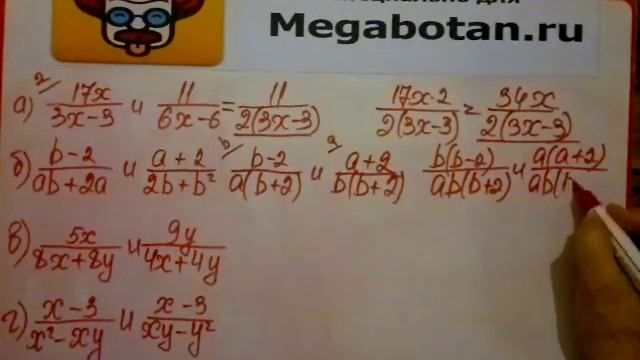 специально для
Megabotan.ru
а) 2/ 17x/(3x-3) и 11/(6x-6) = 11/(2(3x-3)) 17x·2/(2(3x-3)) = 34x/(2(3x-3))
б) (b-2)/(ab+2a) и (a+2)/(2b+b²) b/ (b-2)/(a(b+2)) и a/ (a+2)/(b(b+2)) b(b-2)/(ab(b+2)) и a(a+2)/(ab(
в) 5x/(8x+8y) и 9y/(4x+4y)
г) (x-3)/(x²-xy) и (x-3)/(xy-y²)